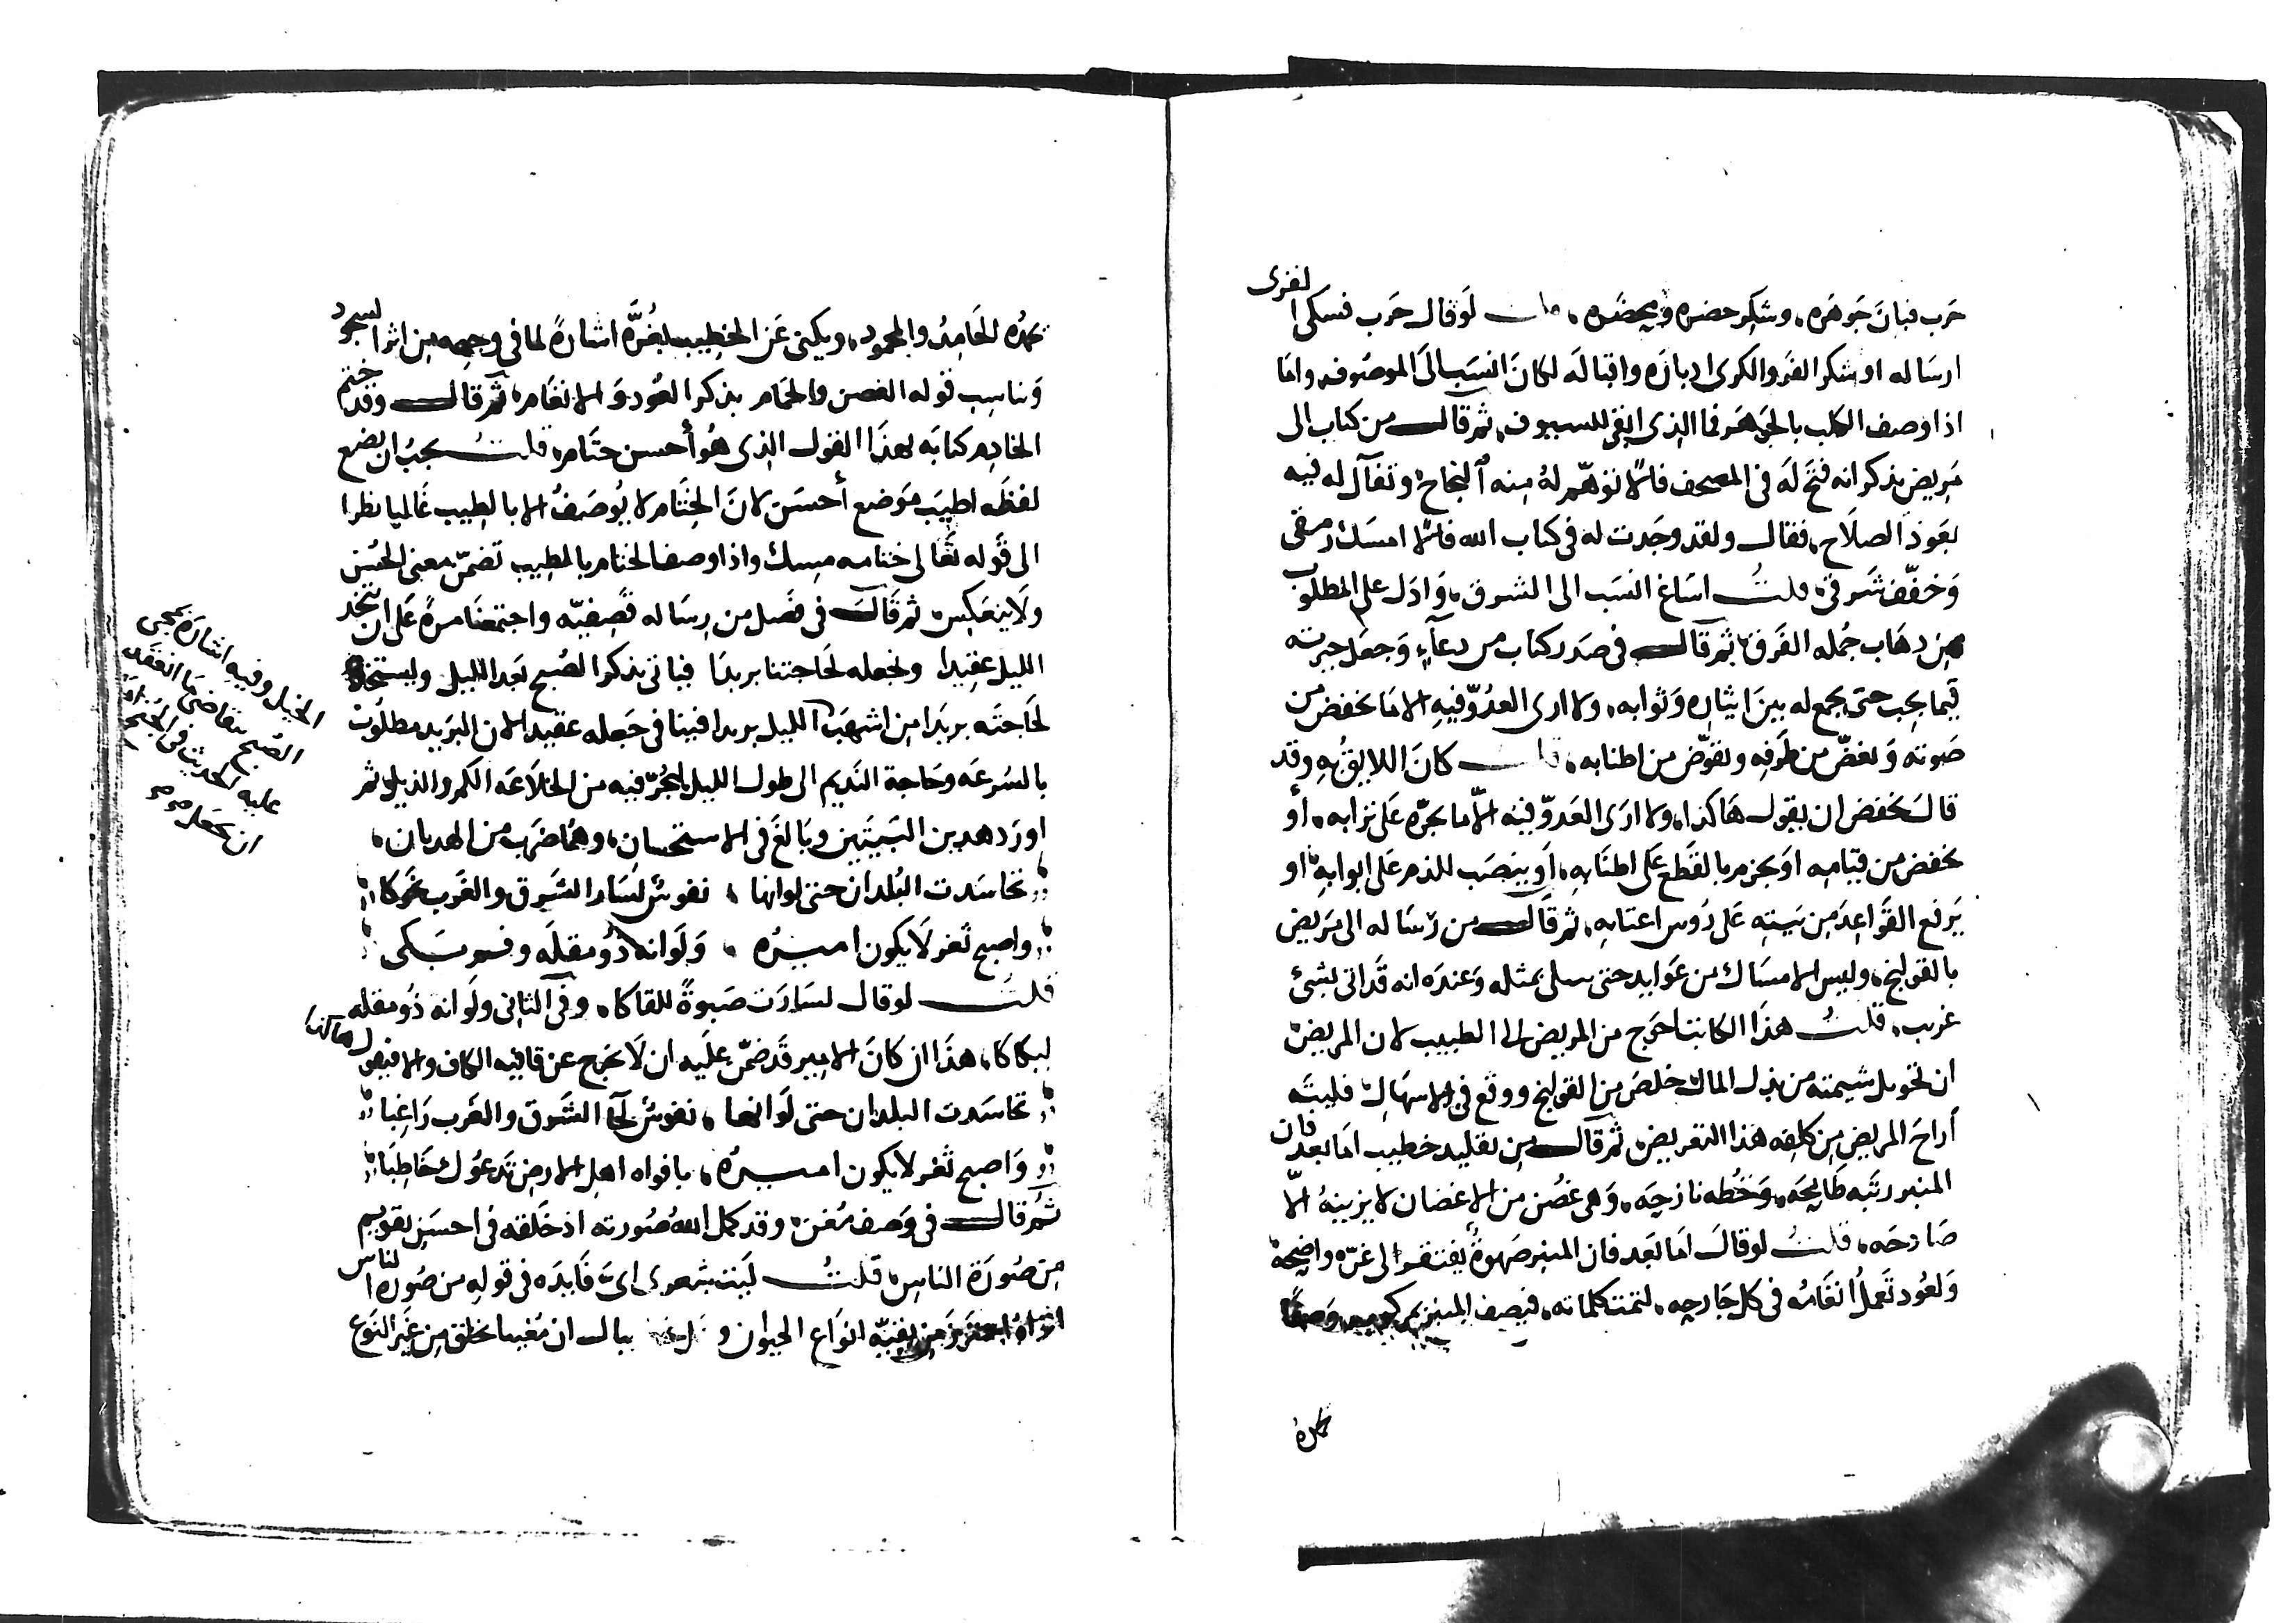 حَرب فبانَ جَوهَره، وشكر حضره ومحضَره، قلت لَو قال حَرب فسكى القرى
ارسَاله او شكر الفر والكرى ادبارَه واقبالَه لكانَ انسَب الىَ الموصُوف، وامَا
اذا وصف الكلب بالجوهَر فما الذى ابقى للسيوف، ثم قال من كتاب الى
مَريض يذكر انه فتحَ لَه فى المصحف فالًا توهّم لهُ منه النجاح وتفآل له فيه
بعَود الصلاَح، فقال ولقد وجَدت له فى كتاب الله فالًا امسَك رمقى
وَخفّف شَرقى، قلتُ اسَاغ انسَب الى الشرق، وَادَل على المطلوب
من دهَاب جُمله الفَرق، ثم قال فى صَدر كتاب من دعآءٍ وَجعَل جيرته
فيما يجب حتى يجمع له بينَ ايثاره وَثوابه، ولا ارى العدُوّ فيهِ الا مَا يخفض من
صَوته وَيغضّ من طَرفه ويقوّض من اطنابه، قلت كانَ اللايق بهِ وقد
قالَ يَخفض ان يقول هَاكذا، ولا ارَى العَدوّ فيه الّا ما يجرّه عَلى ترابه، أو
يخفض من قيامه اوَ يجزم بالقَطع عَلى اطنَابه، اَو ينصَب للذم عَلى ابوابهِ، او
يَرفع القَواعِدَ من بَيته عَلى رُوس اعتابه، ثم قَالَ من رسَاله الى مَريض
بالقولنج، وليس الامسَاك من عَوايد حتى يبتلى بمثله وَعندَه انه قَد اتى بشئ
غريب، قلتُ هذا الكاتب احوَج من المريض الى الطبيب لان المريض
ان تحوّل شيمته من بذل المال خلصَ من القولنج ووقع فى الاسهَال، فليته
أراحَ المريض من كلفه هذا التعريض، ثم قال من تقليد خطيب امَا بعد فان
المنبر رتبَه طَامِحَه، وَخُطه نازحِه، وَهى غصُن من الاغصَان لا يزينهُ الّا
صَادحَه، قلتُ لو قالَ امَا بَعد فان المنبر صَهوةٌ يفتقر الى غرّه واضِحه
وَلعُود تَعملُ انغَامُه فى كل جَارحِه، لتمت كلماته، فيصف المنبر وَصفًا
يحمدُه
يحمدُه الحَامِدُ والمحمود، ويكنى عَن الخطِيب بغُرَّه اشارةً لما فى وجهه من اثر السجود
وَناسب قوله الغصن والحَمام بذكر العُود وَالانغَام، ثم قال وقد ختم
الخادم كتابَه بهذَا القول الذى هُو أحسن ختَام، قلتُ يجبُ ان يضع
لفظَه اطيَب موَضع أحسَن لانَ الختَام لا يُوصَفُ الا بالطيب غَالبا نظرا
الى قَوله تَعَالى ختامه مِسك واذا وصف الختام بالطيب تضمّن معنى الحُسن
ولَا ينعَكِس، ثم قَالَ فى فصَل من رسَاله نَصِيفيّه واجتمعنَا مرةً عَلى ان يتخذ
الليل عقيدا ونجعله لحَاجتنا بريدًا فياتى بذكر الصُبح بَعد الليل ويستنجد
لحَاجتَه بريدَا من اشهبَ الليل بريدا فبينا فى جَعله عقيدا لان البَريد مطلوُب
بالسُرعَه وحَاجة النَديم الى طول الليل ليجُرّ فيه من الخلاَعَه الكم والذيل، ثم
اورَد هذين البَيتَين وبَالغَ فى الاستحسان، وهُما ضَرب من الهديان،
تحَاسَدت البُلدان حتى لو انها ، نفوسٌ لسَار الشرق والغَرب نحوكا
واصبح ثغر لَا يكون اميرُه ، وَلَو انه ذُو مقلَه وفم بَكى
قلتَ لو قال لسَارَت صَبوةً للقاكا، وفى الثانى ولَو انه ذُو مقله
لبكاكا، هذَا ان كانَ الامير قَد ضمّن عليَه ان لَا يخرج عن قافيه الكاف والا فيقول هاكذا
تحَاسَدت البلدان حتى لَو انها ، نفوسٌ لجَا الشَرق والغَرب رَاغِبا
وَاصبح ثغر لا يكون اميرُه، بافواه اهِل الارض تَدعوُك خَاطِبَا
ثم قال فى وَصف مُغن، وقد كمل اللهُ صُورته اذ خلَقه فى احسَن تقويم
من صُورَة الناس، قلتُ لَيت شعرى اىّ فَايدَه فى قولهِ من صُوره الناس
من بقيّه انوَاع الحيوان و ببال ان مُغنيا يخلق من غَير النوَع
الخيل وفيه اشارة بمجى
الصُبح يتقاضى مَا انعقَد
عليه الحديث فى الجُنح امَا
ان يجعَل